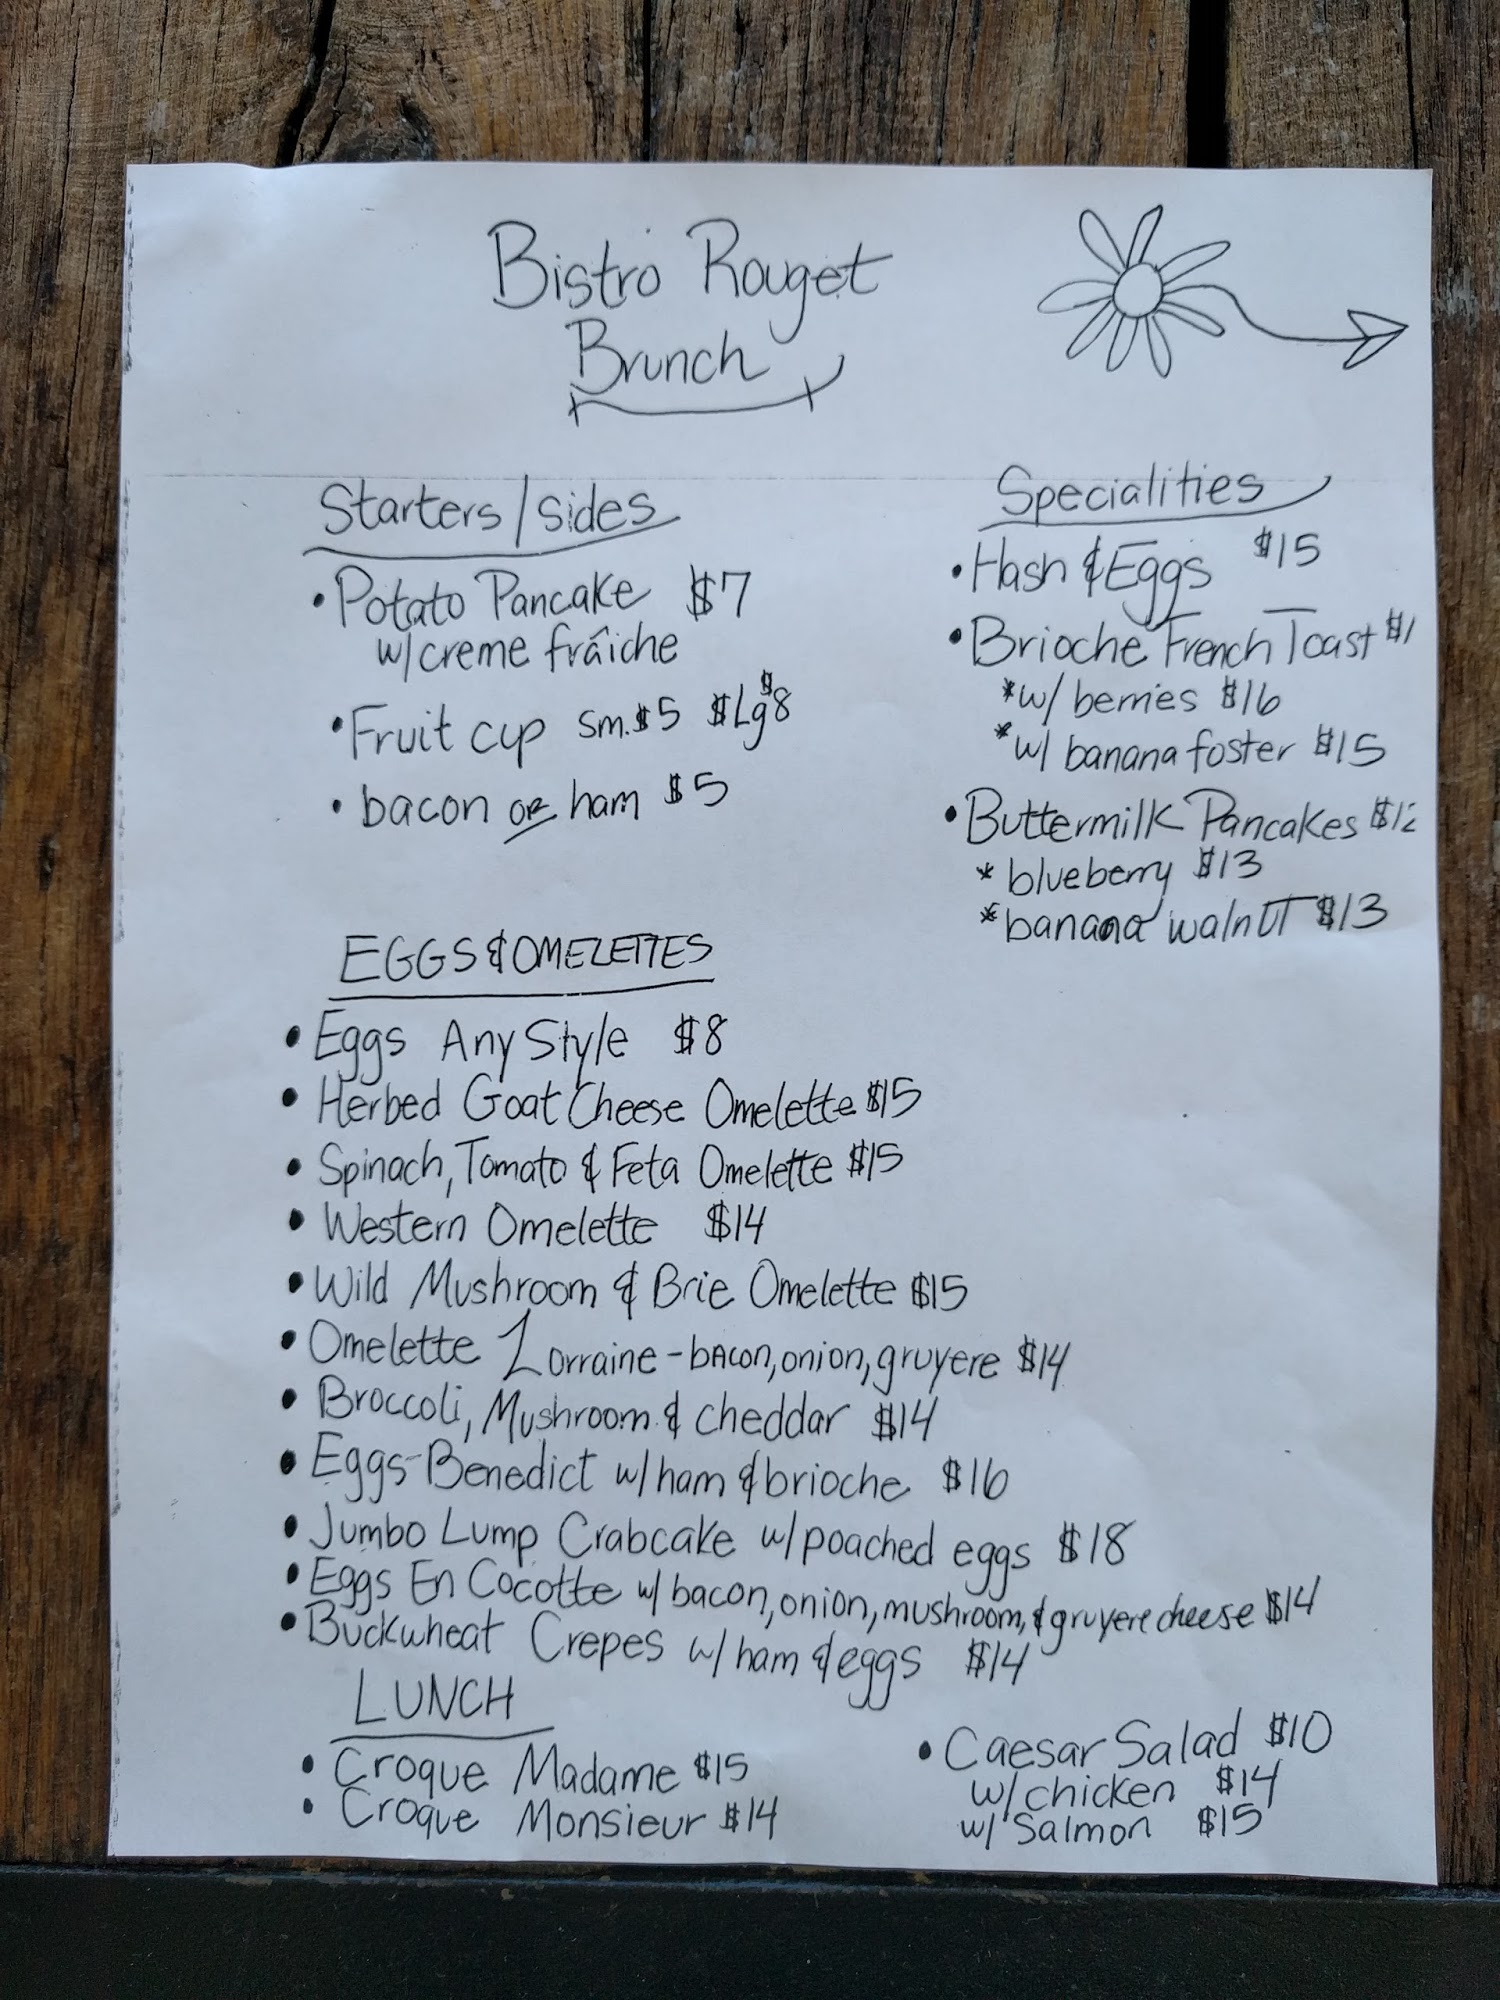 Bistro Rouget
Brunch
Starters/sides
• Potato Pancake $7
w/creme fráiche
• Fruit cup sm.$5 $Lg$8
• bacon or ham $5
Specialities
• Hash & Eggs $15
• Brioche French Toast $1
*w/ berries $16
*w/ banana foster $15
• Buttermilk Pancakes $12
* blueberry $13
*banana walnut $13
EGGS & OMELETTES
• Eggs Any Style $8
• Herbed Goat Cheese Omelette $15
• Spinach, Tomato & Feta Omelette $15
• Western Omelette $14
• Wild Mushroom & Brie Omelette $15
• Omelette Lorraine - bacon, onion, gruyere $14
• Broccoli, Mushroom & cheddar $14
• Eggs Benedict w/ham & brioche $16
• Jumbo Lump Crabcake w/poached eggs $18
• Eggs En Cocotte w/ bacon, onion, mushroom, & gruyere cheese $14
• Buckwheat Crepes w/ ham & eggs $14
LUNCH
• Croque Madame $15
• Croque Monsieur $14
• Caesar Salad $10
w/chicken $14
w/ Salmon $15